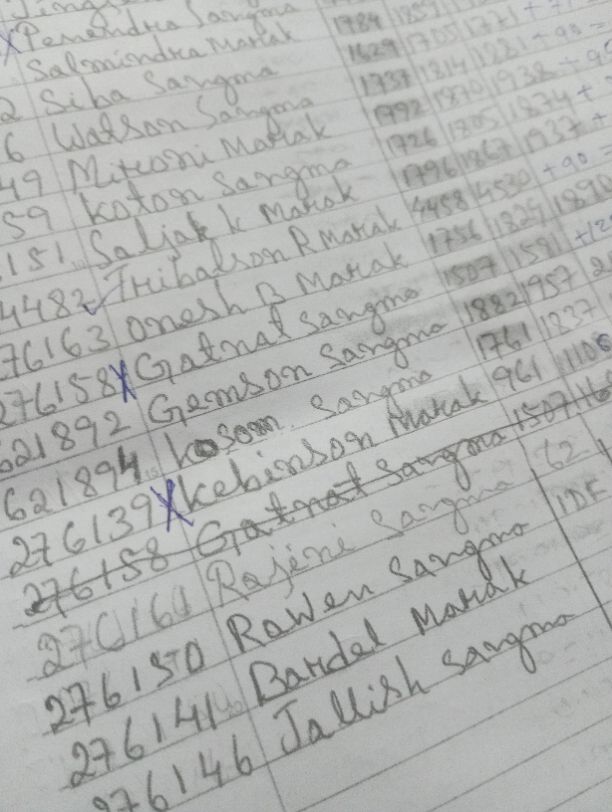 Penendra Sangma 1784 1859
Salmindra Marak 1629 1705 1771
2 Siba Sangma 1737 1814 1881 +90 =
6 Watson Sangma 1792 1870 1938 +90
49 Mitroni Marak 1726 1805 1874 +
59 Koton Sangma 1796 1867 1937 +
151 Saljak k Marak 4458 4530 +90 =
4482 Tribalson R Marak 1756 1829 1890
76163 Onesh B Marak 1507 1591 +12
276158 X Gatnat Sangma 1882 1957
621892 Gemson Sangma 1761 1837
621894 Kosom Sangma 961 1106
276139 X Kebinson Marak 1507 116
276158 Gatnat Sangma 62
276160 Rajini Sangma IDF
276150 Rawen Sangma
276141 Bardel Marak
276146 Jallish Sangma